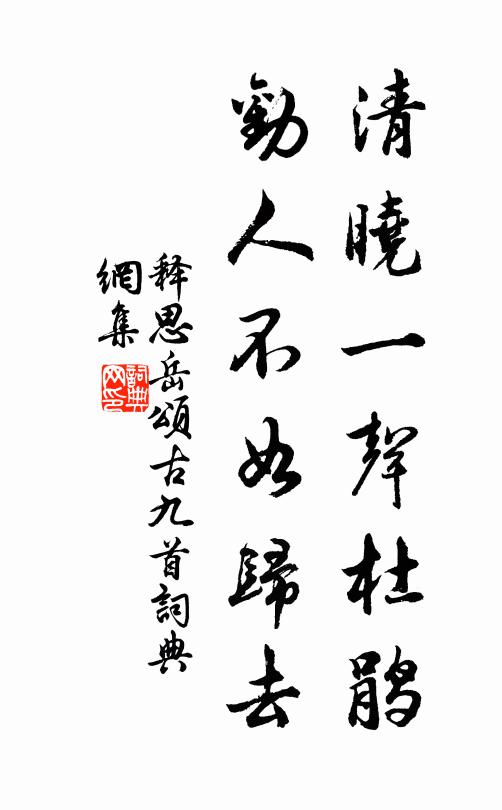 清曉一聲杜鹃
勸人不如歸去
释思岳頌古九首詞典
網集
詞典網印